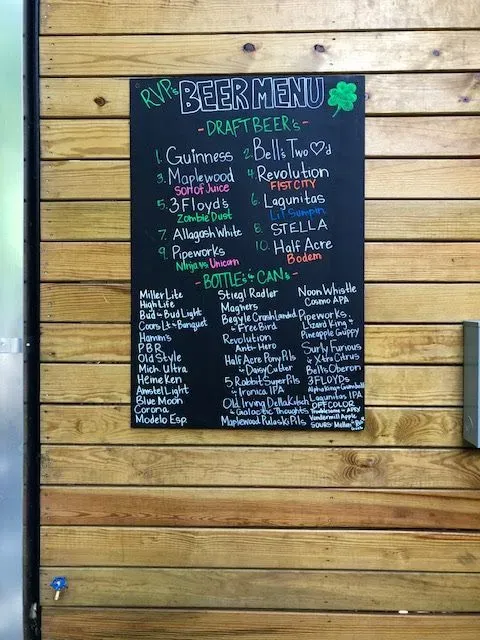 RVP's BEER MENU
- DRAFT BEER's -
1. Guinness
2. Bell's Two ♡'d
3. Maplewood
Son of Juice
4. Revolution
FIST CITY
5. 3 Floyd's
Zombie Dust
6. Lagunitas
Lil Sumpin
7. Allagash White
8. STELLA
9. Pipeworks
Ninja vs. Unicorn
10. Half Acre
Bodem
- BOTTLE's & CANs -
Miller Lite
High Life
Bud & Bud Light
Coors Lt & Banquet
Hamm's
P.B.R.
Old Style
Mich Ultra
Heineken
Amstel Light
Blue Moon
Corona
Modelo Esp.
Stiegl Radler
Magners
Begyle Crash Landed
& Free Bird
Revolution
Anti-Hero
Half Acre Pony Pils
& Daisy Cutter
5 Rabbit Super Pils
& Ironica IPA
Old Irving Della Kitsch
& Galactic Thoughts
Maplewood Pulaski Pils
Noon Whistle
Cosmo APA
Pipeworks
Lizard King &
Pineapple Guppy
Surly Furious
& Xtra Citrus
Bell's Oberon
3 FLOYDs
Alpha King & Gumballhead
Lagunitas IPA
OFF COLOR
Troublesome & Apex
Vandermill Apple
SOURS